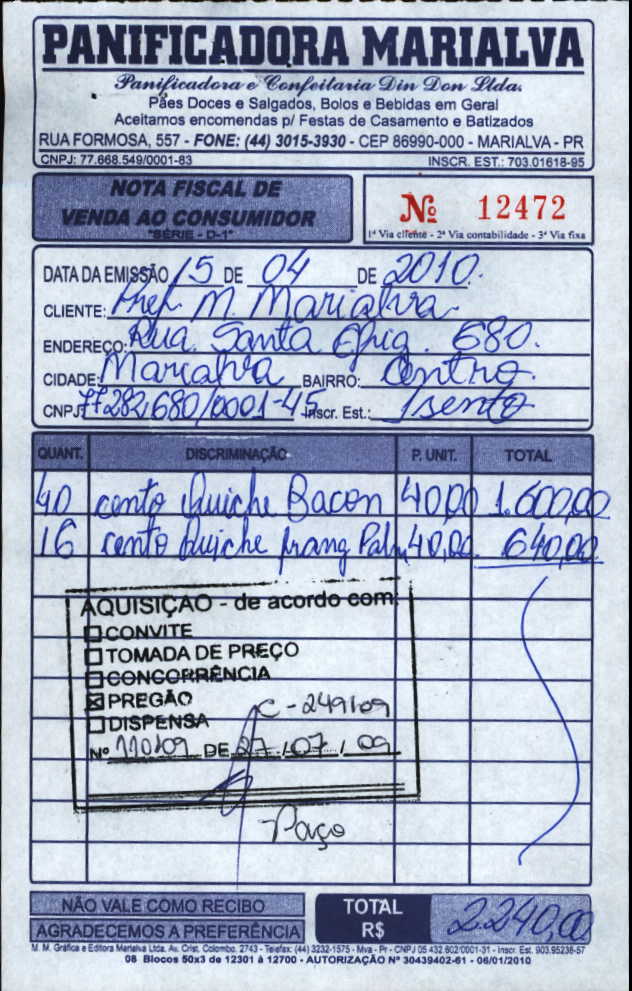 PANIFICADORA MARIALVA
Panificadora e Confeitaria Din Don Ltda.
Pães Doces e Salgados, Bolos e Bebidas em Geral
Aceitamos encomendas p/ Festas de Casamento e Batizados
RUA FORMOSA, 557 - FONE: (44) 3015-3930 - CEP 86990-000 - MARIALVA - PR
CNPJ: 77.668.549/0001-83 INSCR. EST.: 703.01618-95
NOTA FISCAL DE
VENDA AO CONSUMIDOR
"SÉRIE - D-1"
Nº 12472
1ª Via cliente - 2ª Via contabilidade - 3ª Via fixa
DATA DA EMISSÃO 15 DE 04 DE 2010.
CLIENTE: Pref. M. Marialva
ENDEREÇO: Rua Santa Efig. 680.
CIDADE: Marialva BAIRRO: Centro.
CNPJ: 77282,680/0001-45 Inscr. Est.: Isento
QUANT. DISCRIMINAÇÃO P. UNIT. TOTAL
40 cento Quiche Bacon 40,00 1.600,00
16 cento Quiche frang Palm 40,00 640,00
AQUISIÇÃO - de acordo com:
CONVITE
TOMADA DE PREÇO
CONCORRÊNCIA
PREGÃO C - 249/09
DISPENSA
Nº 110/09 DE 27 / 07 / 09
Paço
NÃO VALE COMO RECIBO
AGRADECEMOS A PREFERÊNCIA
TOTAL
R$ 2.240,00
M. M. Gráfica e Editora Marialva Ltda. Av. Crist. Colombo, 2743 - Telefax: (44) 3232-1575 - Mva - Pr - CNPJ 05.432.602/0001-31 - Inscr. Est. 903.95238-57
08 Blocos 50x3 de 12301 à 12700 - AUTORIZAÇÃO Nº 30439402-61 - 06/01/2010